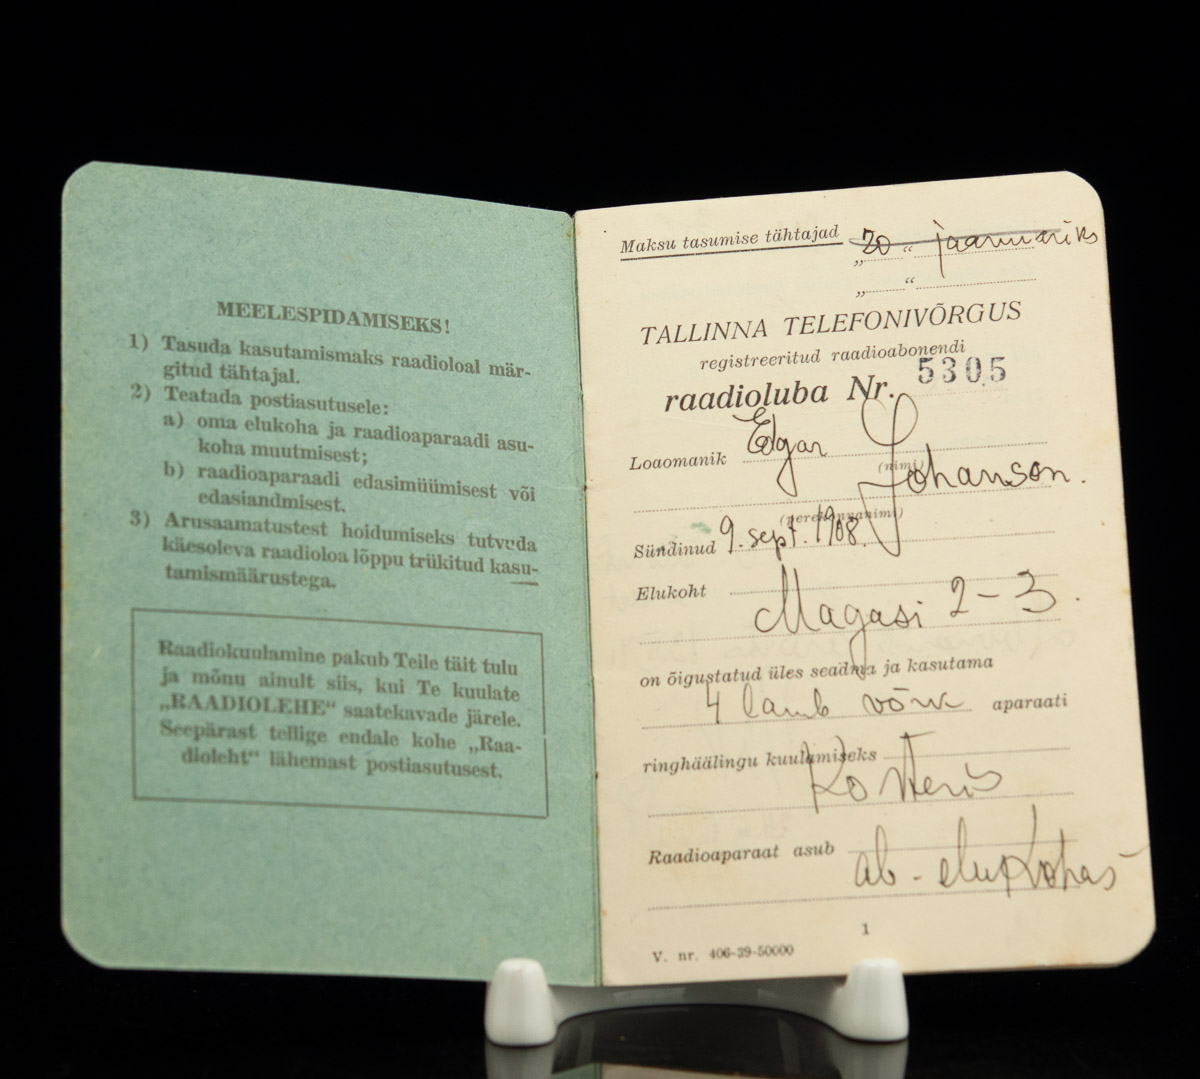 MEELESPIDAMISEKS!
1) Tasuda kasutamismaks raadioloal mär-
gitud tähtajal.
2) Teatada postiasutusele:
a) oma elukoha ja raadioaparaadi asu-
koha muutmisest;
b) raadioaparaadi edasimüümisest või
edasiandmisest.
3) Arusaamatustest hoidumiseks tutvuda
käesoleva raadioloa lõppu trükitud kasu-
tamismäärustega.
Raadiokuulamine pakub Teile täit tulu
ja mõnu ainult siis, kui Te kuulate
„RAADIOLEHE“ saatekavade järele.
Seepärast tellige endale kohe „Raa-
dioleht“ lähemast postiasutusest.
Maksu tasumise tähtajad „20“ jaanuariks
„ “
TALLINNA TELEFONIVÕRGUS
registreeritud raadioabonendi
raadioluba Nr. 5305
Loaomanik Edgar
(nimi)
Johanson.
(perekonnanimi)
Sündinud 9. sept. 1908.
Elukoht
Magasi 2-3.
on õigustatud üles seadma ja kasutama
4 lamb võrk aparaati
ringhäälingu kuulamiseks
Raadioaparaat asub
ab-elukohas
1
V. nr. 406-39-50000